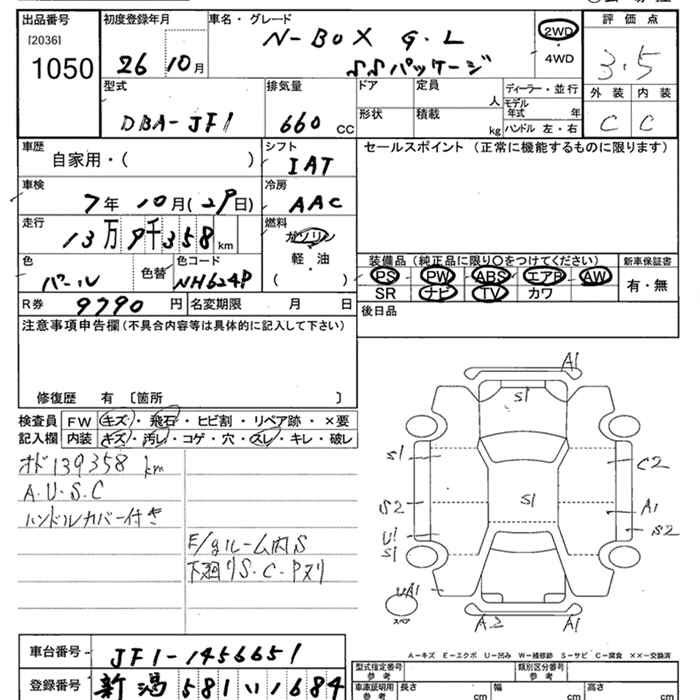 出品番号 初度登録年月 車名・グレード 評価点
[2036]
1050 26 10月 N-BOX G・L 2WD 3.5
SSパッケージ 4WD
型式 排気量 ドア 定員 人 ディーラー・並行 外装 内装
DBA-JF1 660 CC 形状 積載 kg モデル年式 年 C C
ハンドル 左・右
車歴 自家用・( ) シフト IAT セールスポイント (正常に機能するものに限ります)
車検 7年 10月(29日) 冷房 AAC
走行 13万9千358km 燃料 ガソリン
軽・油
( )
色 パール 色替 色コード NH624P
装備品 (純正品に限り○をつけてください) 新車保証書
PS PW ABS エアB AW 有・無
SR ナビ TV カワ
R券 9790円 名変期限 月 日 後日品
注意事項申告欄 (不具合内容等は具体的に記入して下さい)
修復歴 有 〔箇所 〕
検査員 FW キズ・飛石・ヒビ割・リペア跡・×要
記入欄 内装 キズ・汚レ・コゲ・穴・スレ・キレ・破レ
オド139358km
A.U.S.C
ハンドルカバー付き
E/gルーム内S
下廻りS.C.Pヌリ
A1
S1
S1 C2
S2 S1 A1
U1 S2
S1
UA1
スペア A2 A1
A-キズ E-エクボ U-凹み W-補修跡 S-サビ C-腐食 ××-交換済
車台番号 JF1-1456651
型式指定番号 参考 類別区分番号 参考
登録番号 新潟 581 い 1684
車庫証明用 参考 長さ cm 幅 cm 高さ cm